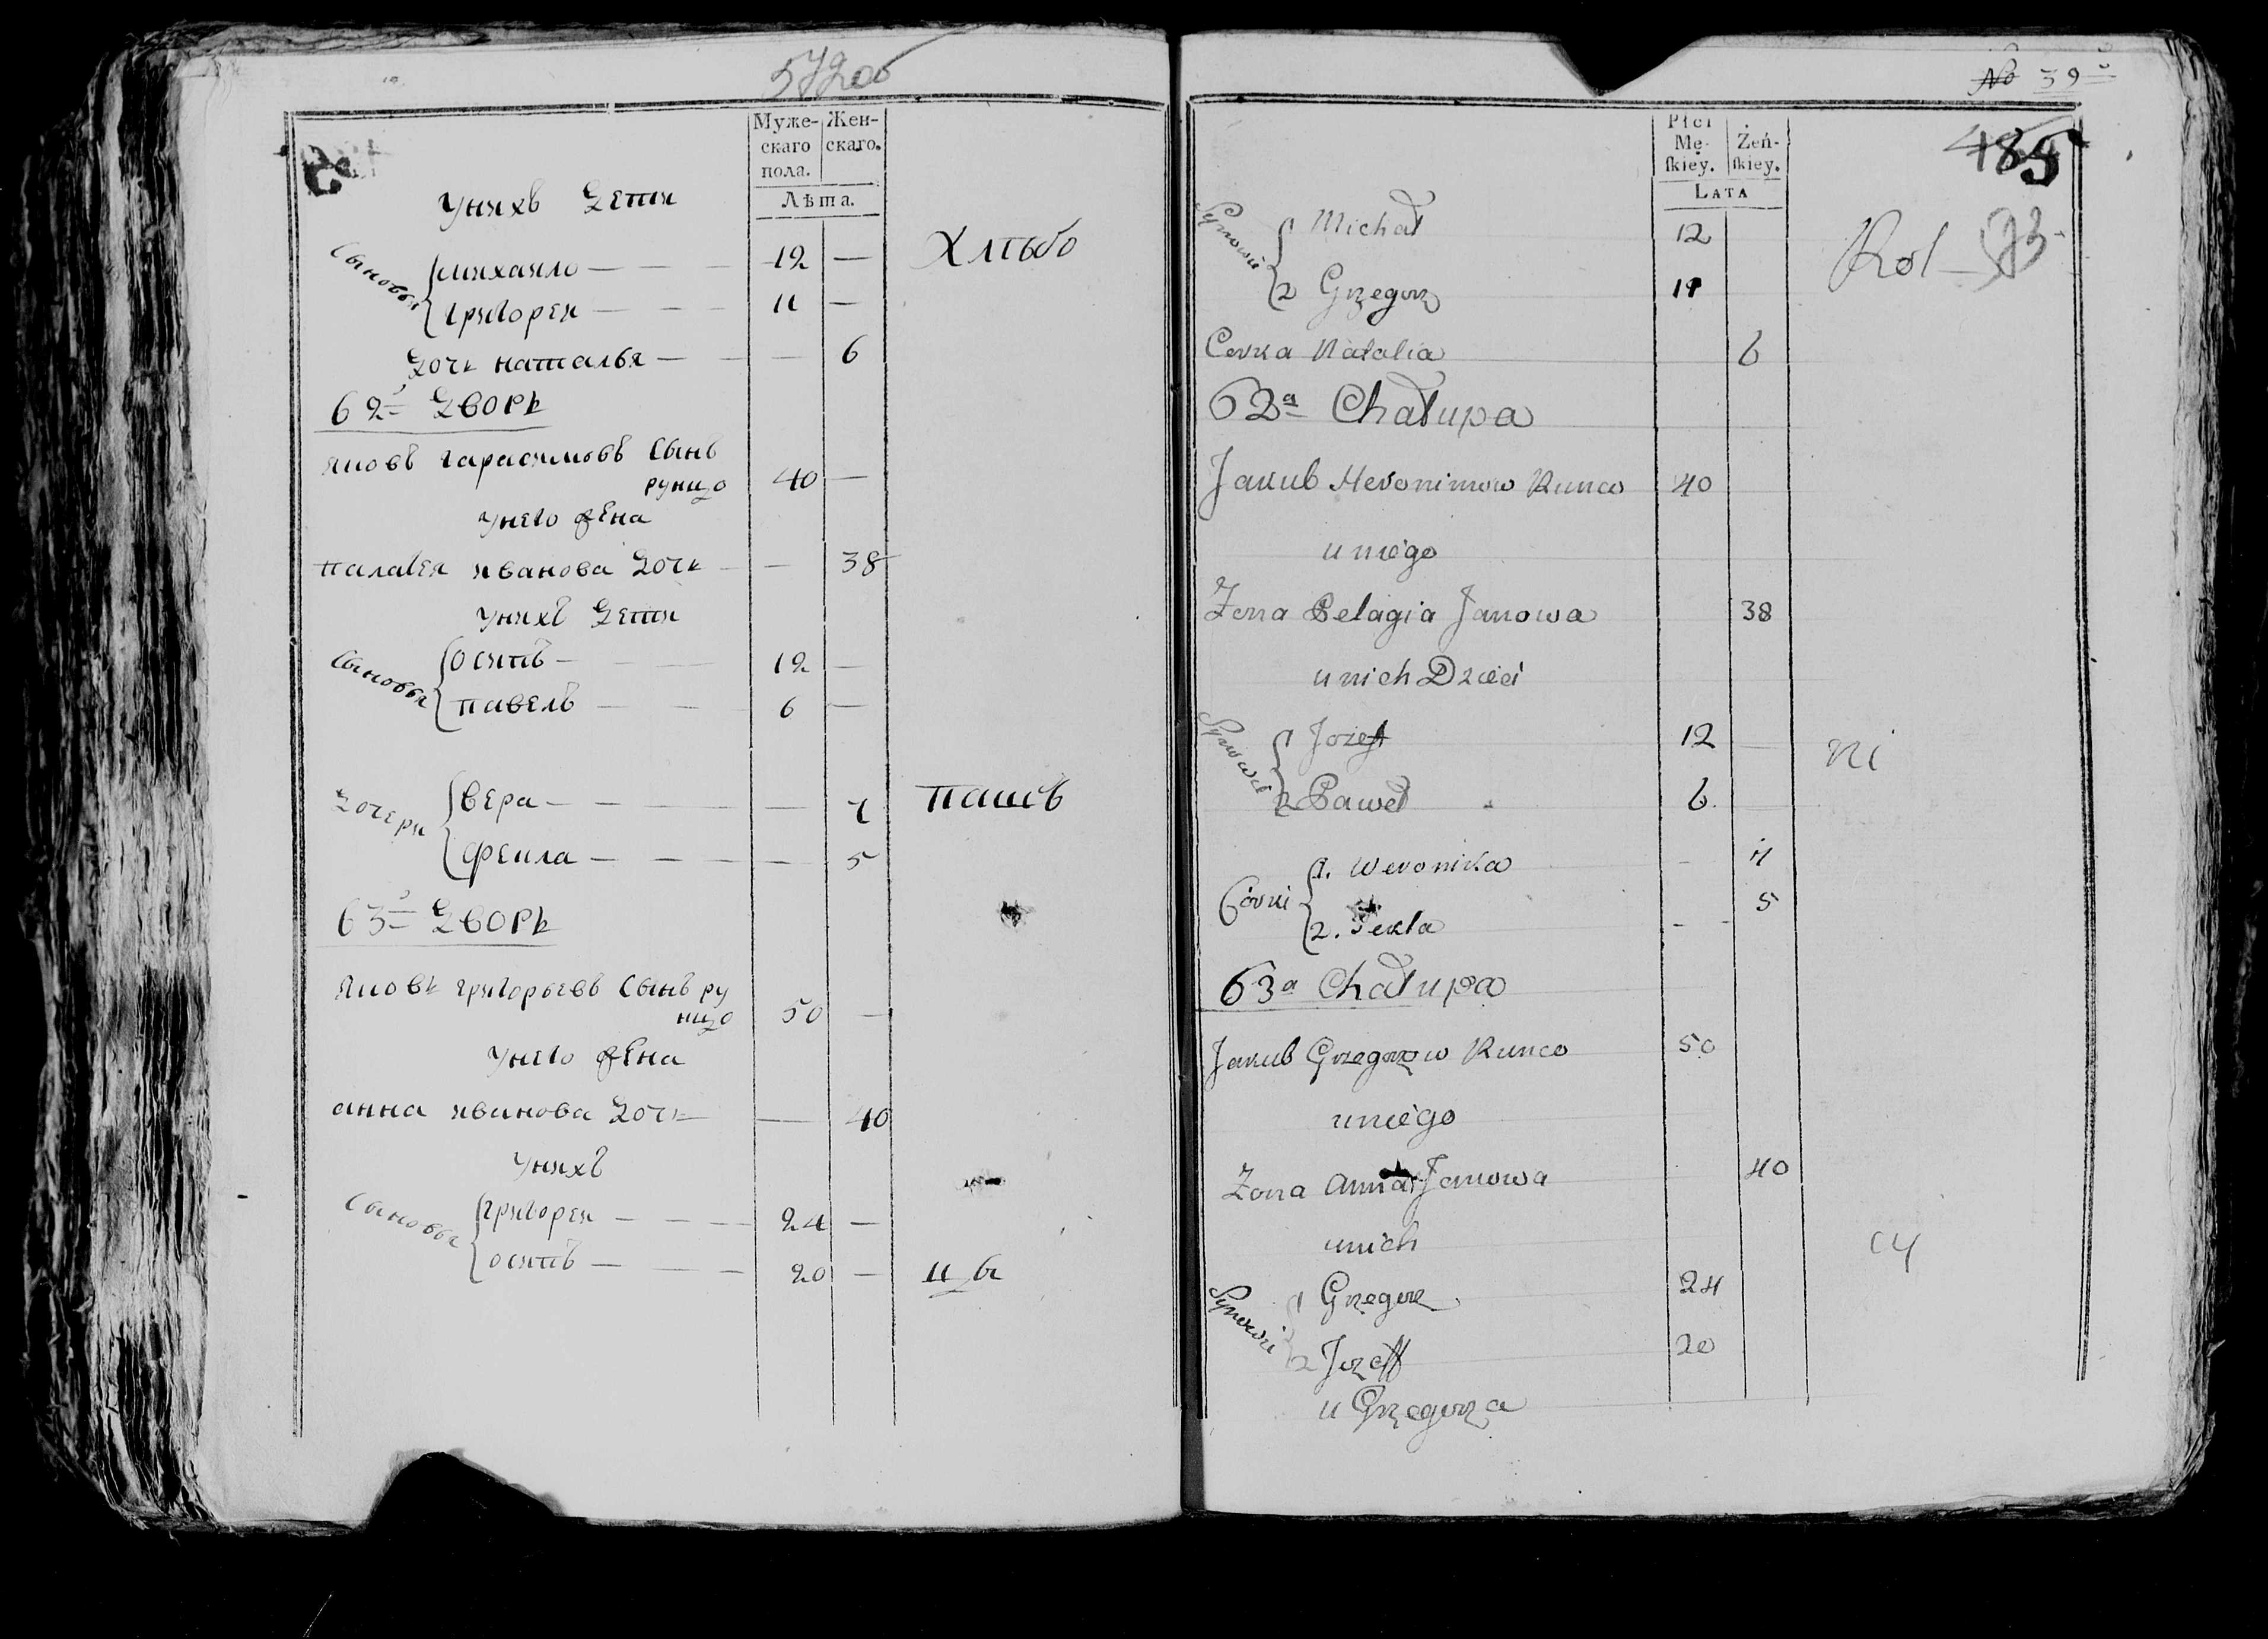 572об
Муже-
скаго
пола.
Жен-
скаго.
Лѣта.
Унихъ Дети
Сыновья
михайло — 12 —
григорей — 11 —
Хлѣбо
дочь наталья — — 6
62й Дворь
яковъ гарасимовъ Сынъ
рунцо 40 —
Унего жена
палагея иванова дочь — — 38
Унихъ Дети
Сыновья
осипъ — 12 —
павелъ — 6 —
Дочери
вера — — 7
пашъ
фекла — — 5
63й Дворь
яковъ григорьевъ Сынъ ру
нцо 50 —
Унего жена
анна иванова дочь — 40
Унихъ
Сыновья
григорей — 24 —
осипъ — 20 —
No 39
485
Płci
Mę-
ſkiey.
Żeń-
ſkiey.
LATA
Synowie
1 Michał 12
Rol
2 Grzegorz 11
Corka Natalia 6
62a Chałupa
Jakub Heronimow Runco 40
u niego
Zona Pelagia Janowa 38
u nich Dzieci
Synowie
1 Jozef 12
ni
2 Paweł 6.
Córki
1. Weronika - 7
2. Tekla - 5
63a Chałupa
Jakub Grzegorzow Runco 50
u niego
Zona Anna Janowa 40
u nich
cy
Synowie
1 Grzegorz 24
2 Jozeff 20
u Grzegorza